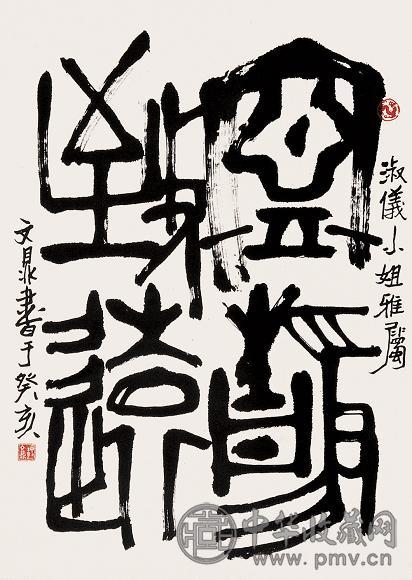 淑儀小姐雅屬
寧靜
致遠
文書于癸亥
中华收藏网
www.pmv.cn